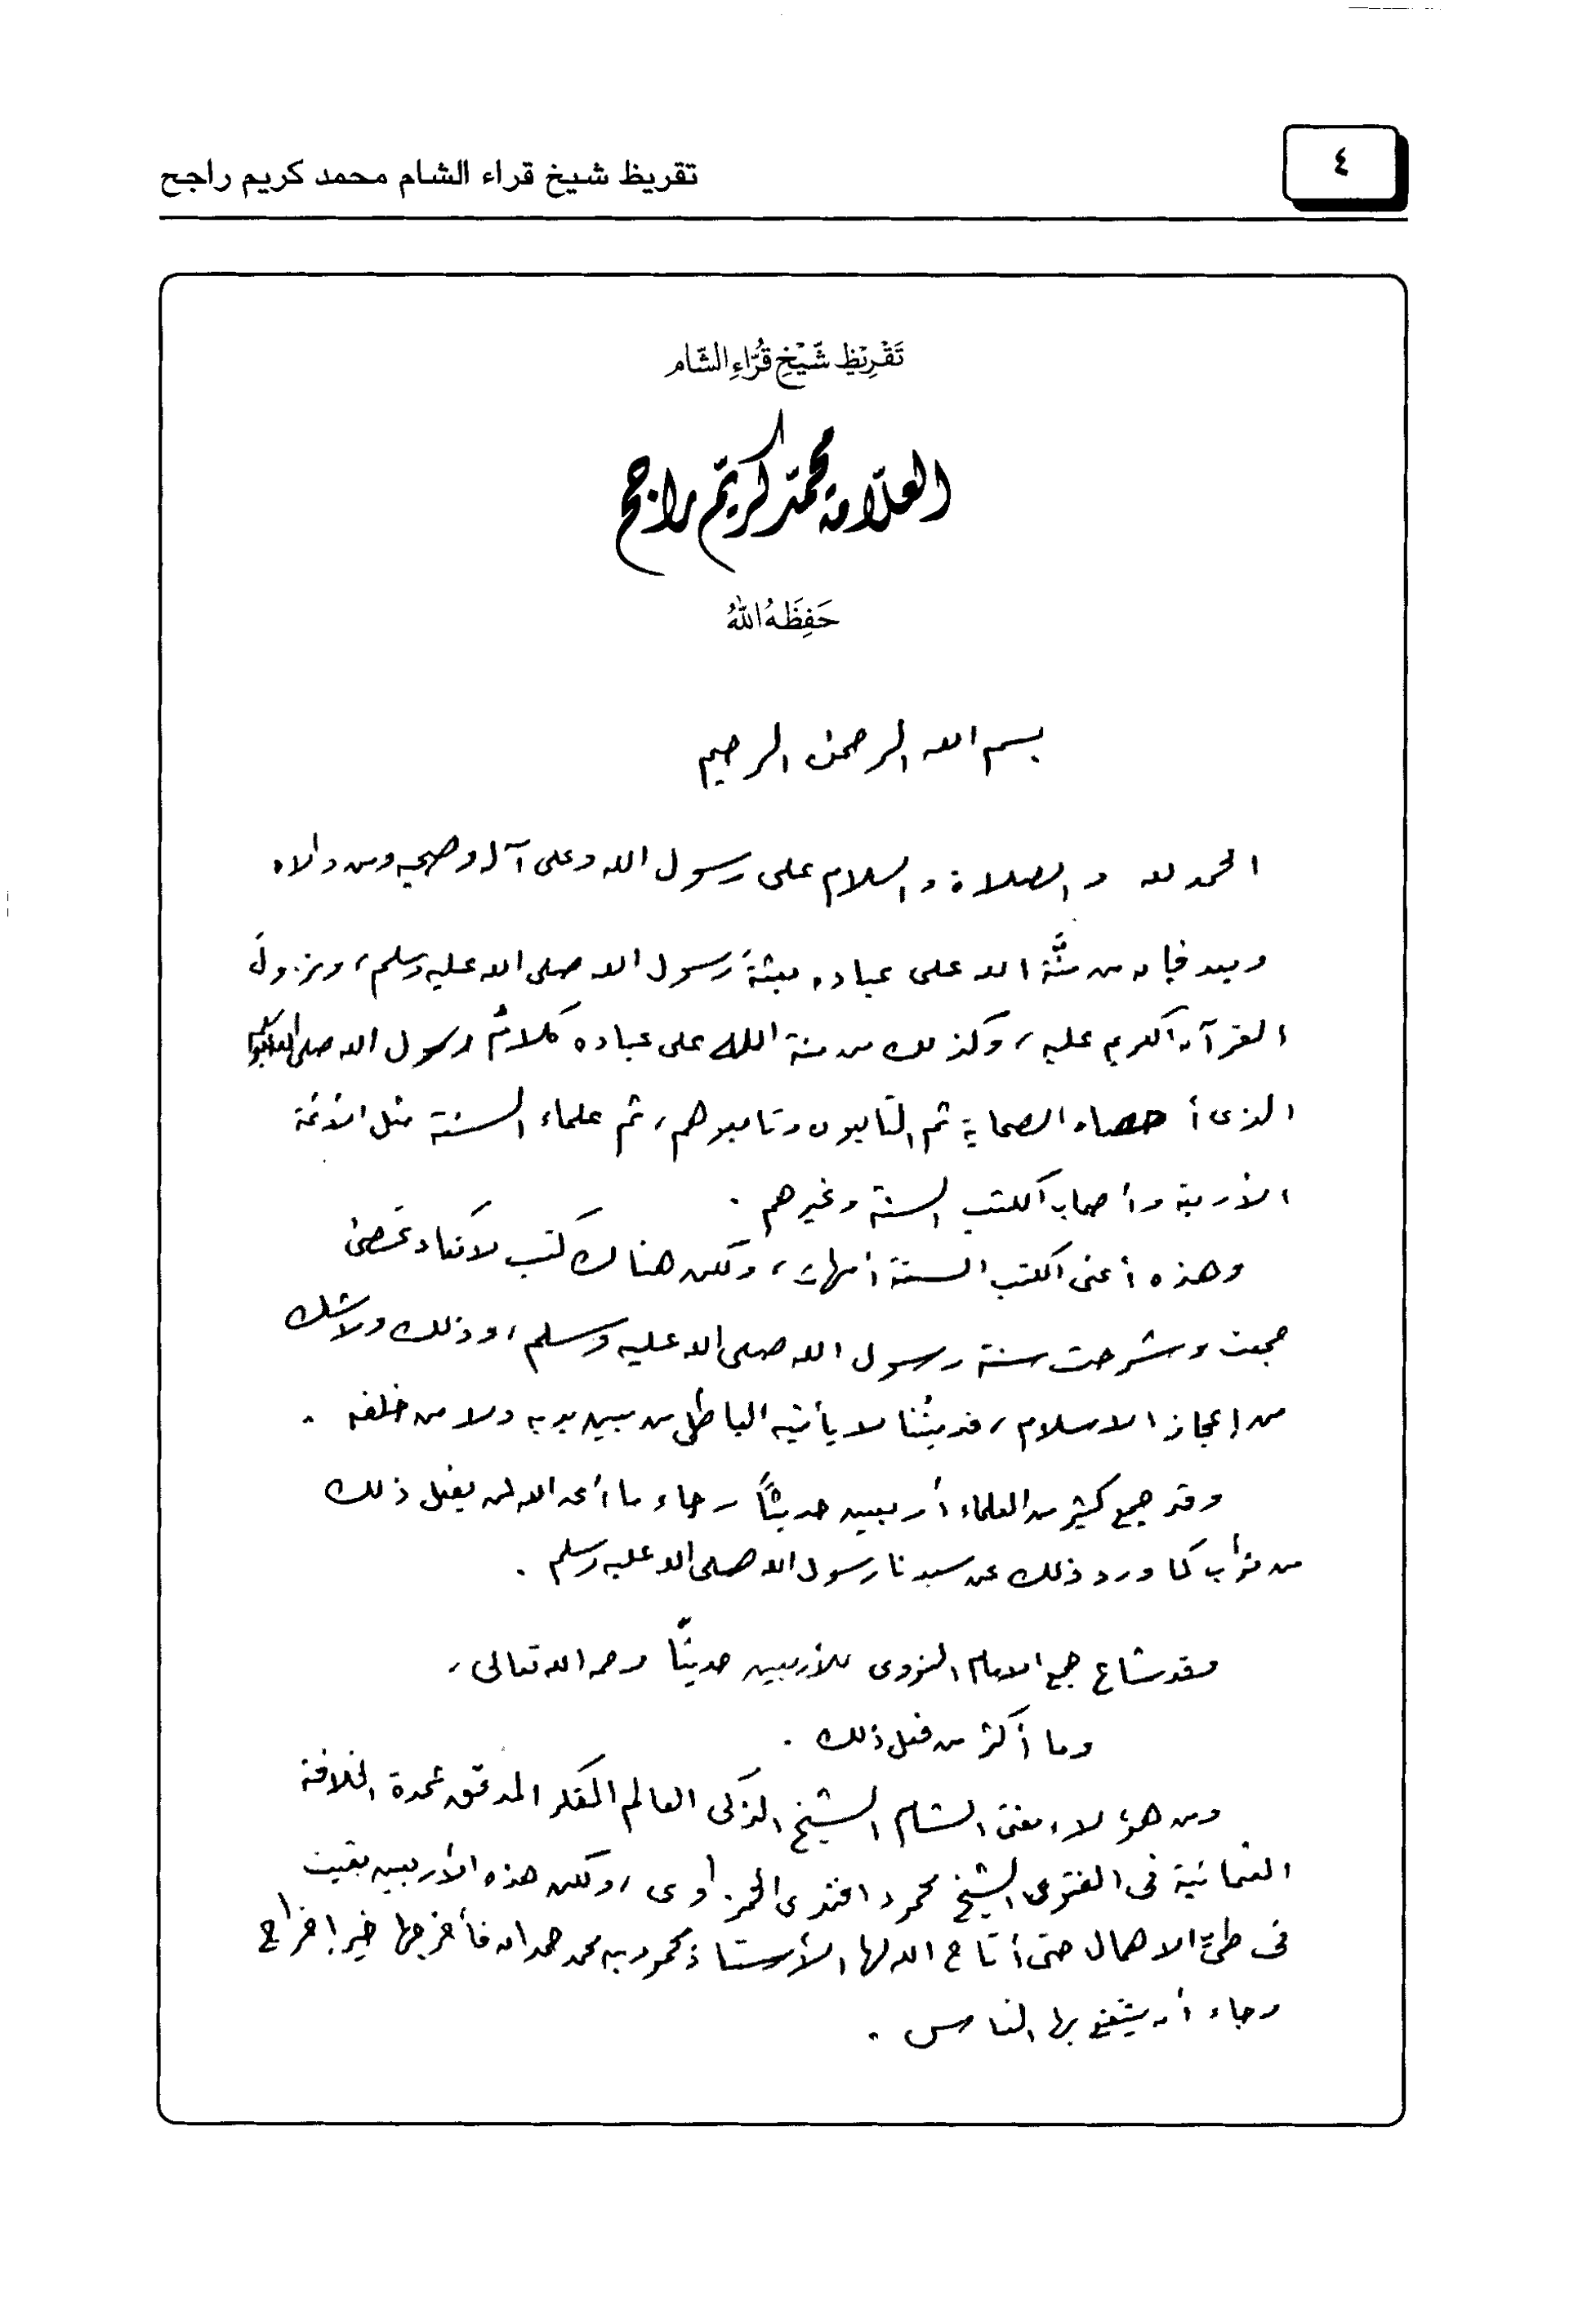 ٤
تقريظ شيخ قراء الشام محمد كريم راجح
تَقْرِيْظِ شَيْخِ قُرَّاءِ الشَّام
العلّامة محمّد كريّم راجح
حَفِظَهُ اللهُ
بسم الله الرحمن الرحيم
الحمد لله والصلاة والسلام على رسول الله وعلى آله وصحبه ومن والاه
وبعد فإن من منَّة الله على عباده بعثةَ رسول الله صلى الله عليه وسلم، ونزولَ
القرآن الكريم عليه، وكذلك من منة الله على عباده كلامُ رسول الله صلى الله عليه وسلم
الذي أحصاه الصحابة ثم التابعون وتابعوهم، ثم علماء السنة مثل الأئمة
الأربعة وأصحاب الكتب الستة وغيرهم.
وهذه أعني الكتب الستة أمهات، ولكن هناك كتب لا تكاد تحصى
جمعت وشرحت سنة رسول الله صلى الله عليه وسلم، وذلك ولا شك
من إعجاز الإسلام، فديننا لا يأتيه الباطل من بين يديه ولا من خلفه.
وقد جمع كثير من العلماء أربعين حديثًا رجاء ما أعد الله لمن يفعل ذلك
من ثواب كما ورد ذلك عن سيدنا رسول الله صلى الله عليه وسلم.
وقد شاع جمع الإمام النووي للأربعين حديثًا رحمه الله تعالى،
وما أكثر من فعل ذلك.
ومن هؤلاء مفتي الشام الشيخ الذكي العالم المفكر المدقق عمدة الخلافة
العثمانية في الفتوى الشيخ محمود افندي الحمزاوي، ولكن هذه الأربعين بقيت
في طيِّ الاهمال حتى أتاح الله لها الأستاذ محمود بن محمد حمدان فأخرجها خير إخراج
رجاء أن ينتفع بها الناس.